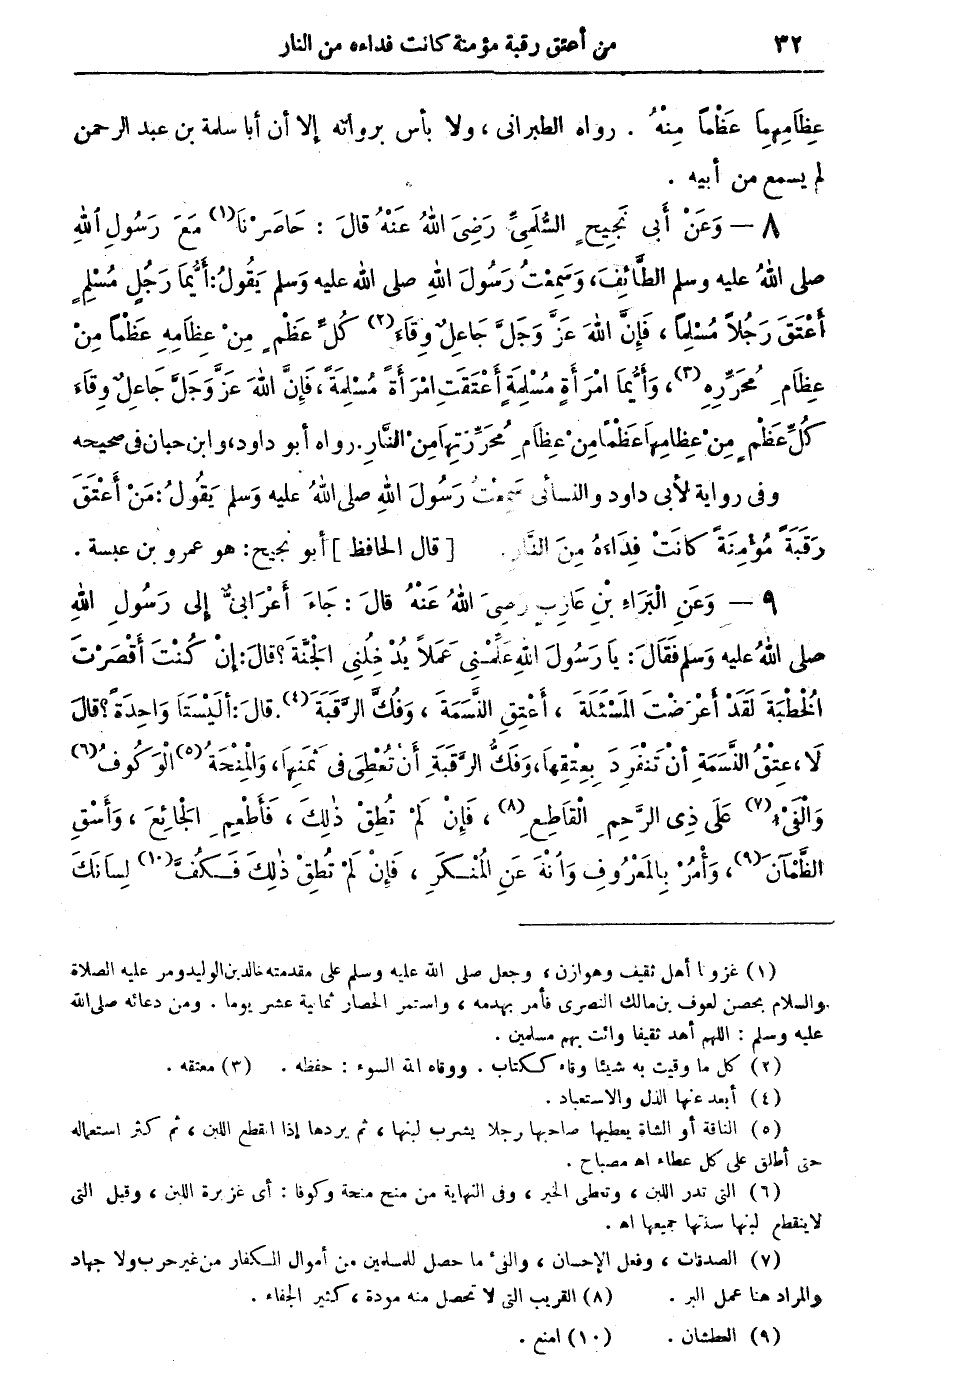 ٣٢ من أعتق رقبة مؤمنة كانت فداءه من النار
عِظَامِهِمَا عَظْماً مِنْهُ . رواه الطبرانى ، ولا بأس برواته إلا أن أبا سلمة بن عبد الرحمن
لم يسمع من أبيه .
٨ — وَعَنْ أَبِى نَجِيحٍ السُّلَمِىِّ رَضِىَ اللهُ عَنْهُ قَالَ : حَاصَرْنَا(١) مَعَ رَسُولِ اللهِ
صلى اللهُ عليه وسلم الطَّائِفَ، وَسَمِعْتُ رَسُولَ اللهِ صلى الله عليه وَسلم يَقُولُ: أَيُّمَا رَجُلٍ مُسْلِمٍ
أَعْتَقَ رَجُلاً مُسْلِماً ، فَإِنَّ اللهَ عَزَّ وَجَلَّ جَاعِلٌ وِقَاءَ(٢) كُلِّ عَظْمٍ مِنْ عِظَامِهِ عَظْماً مِنْ
عِظَامِ مُحَرَّرِهِ(٣)، وَأَيُّمَا امْرَأَةٍ مُسْلِمَةٍ أَعْتَقَتِ امْرَأَةً مُسْلِمَةً ، فَإِنَّ اللهَ عَزَّ وَجَلَّ جَاعِلٌ وِقَاءَ
كُلِّ عَظْمٍ مِنْ عِظَامِهَا عَظْمًا مِنْ عِظَامِ مُحَرَّرَتِهَا مِنَ النَّارِ. رواه أبو داود، وابن حبان فى صحيحه
وفى رواية لأبى داود والنسائى سَمِعْتُ رَسُولَ اللهِ صلى اللهُ عليه وَسلم يَقُولُ: مَنْ أَعْتَقَ
رَقَبَةً مُؤْمِنَةً كَانَتْ فِدَاءَهُ مِنَ النَّارِ. [ قال الحافظ ] أبو نجيح: هو عمرو بن عبسة .
٩ — وَعَنِ الْبَرَاءِ بْنِ عَازِبٍ رَضِىَ اللهُ عَنْهُ قَالَ : جَاءَ أَعْرَابِىٌّ إِلَى رَسُولِ اللهِ
صلى اللهُ عليه وَسلم فَقَالَ: يَا رَسُولَ اللهِ عَلِّمْنِى عَمَلاً يُدْخِلُنِى الْجَنَّةَ ؟ قالَ: إِنْ كُنْتَ أَقْصَرْتَ
الْخُطْبَةَ لَقَدْ أَعْرَضْتَ الْمَسْئَلَةَ ، أَعْتِقِ النَّسَمَةَ ، وَفُكَّ الرَّقَبَةَ(٤). قالَ: أَلَيْسَتَا وَاحِدَةً ؟ قالَ
لَا، عِتْقُ النَّسَمَةِ أَنْ تَنْفَرِدَ بِعِتْقِهَا، وَفَكُّ الرَّقَبَةِ أَنْ تُعْطِىَ فِى ثَمَنِهَا، وَالْمِنْحَةُ(٥) الْوَكُوفُ(٦)
وَالْفَىْءُ(٧) عَلَى ذِى الرَّحِمِ الْقَاطِعِ(٨) ، فَإِنْ لَمْ تُطِقْ ذٰلِكَ ، فَأَطْعِمِ الْجَائِعَ ، وَأَسْقِ
الظَّمْآنَ(٩)، وَأْمُرْ بِالْمَعْرُوفِ وَانْهَ عَنِ الْمُنْكَرِ ، فَإِنْ لَمْ تُطِقْ ذٰلِكَ فَكُفَّ(١٠) لِسَانَكَ
(١) غزونا أهل ثقيف وهوازن ، وجعل صلى الله عليه وسلم على مقدمته خالد بن الوليد ومر عليه الصلاة
والسلام بحصن لعوف بن مالك النصرى فأمر بهدمه ، واستمر الحصار ثمانية عشر يوما . ومن دعائه صلى الله
عليه وسلم : اللهم أهد ثقيفا وائت بهم مسلمين .
(٢) كل ما وقيت به شيئا وقاء ككتاب . ووقاه الله السوء : حفظه . (٣) معتقه .
(٤) أبعد عنها الذل والاستعباد .
(٥) الناقة أو الشاة يعطيها صاحبها رجلا يشرب لبنها ، ثم يردها إذا انقطع اللبن ، ثم كثر استعماله
حتى أطلق على كل عطاء اه مصباح .
(٦) التى تدر اللبن ، وتعطى الخير ، وفى النهاية من منح منحة وكوفا : أى غزيرة اللبن ، وقيل التى
لا ينقطع لبنها سنتها جميعها اه .
(٧) الصدقات ، وفعل الإحسان ، والفىء ما حصل للمسلمين من أموال الكفار من غير حرب ولا جهاد
والمراد هنا عمل البر . (٨) القريب التى لا تحصل منه مودة ، كثير الجفاء .
(٩) العطشان . (١٠) امنع .